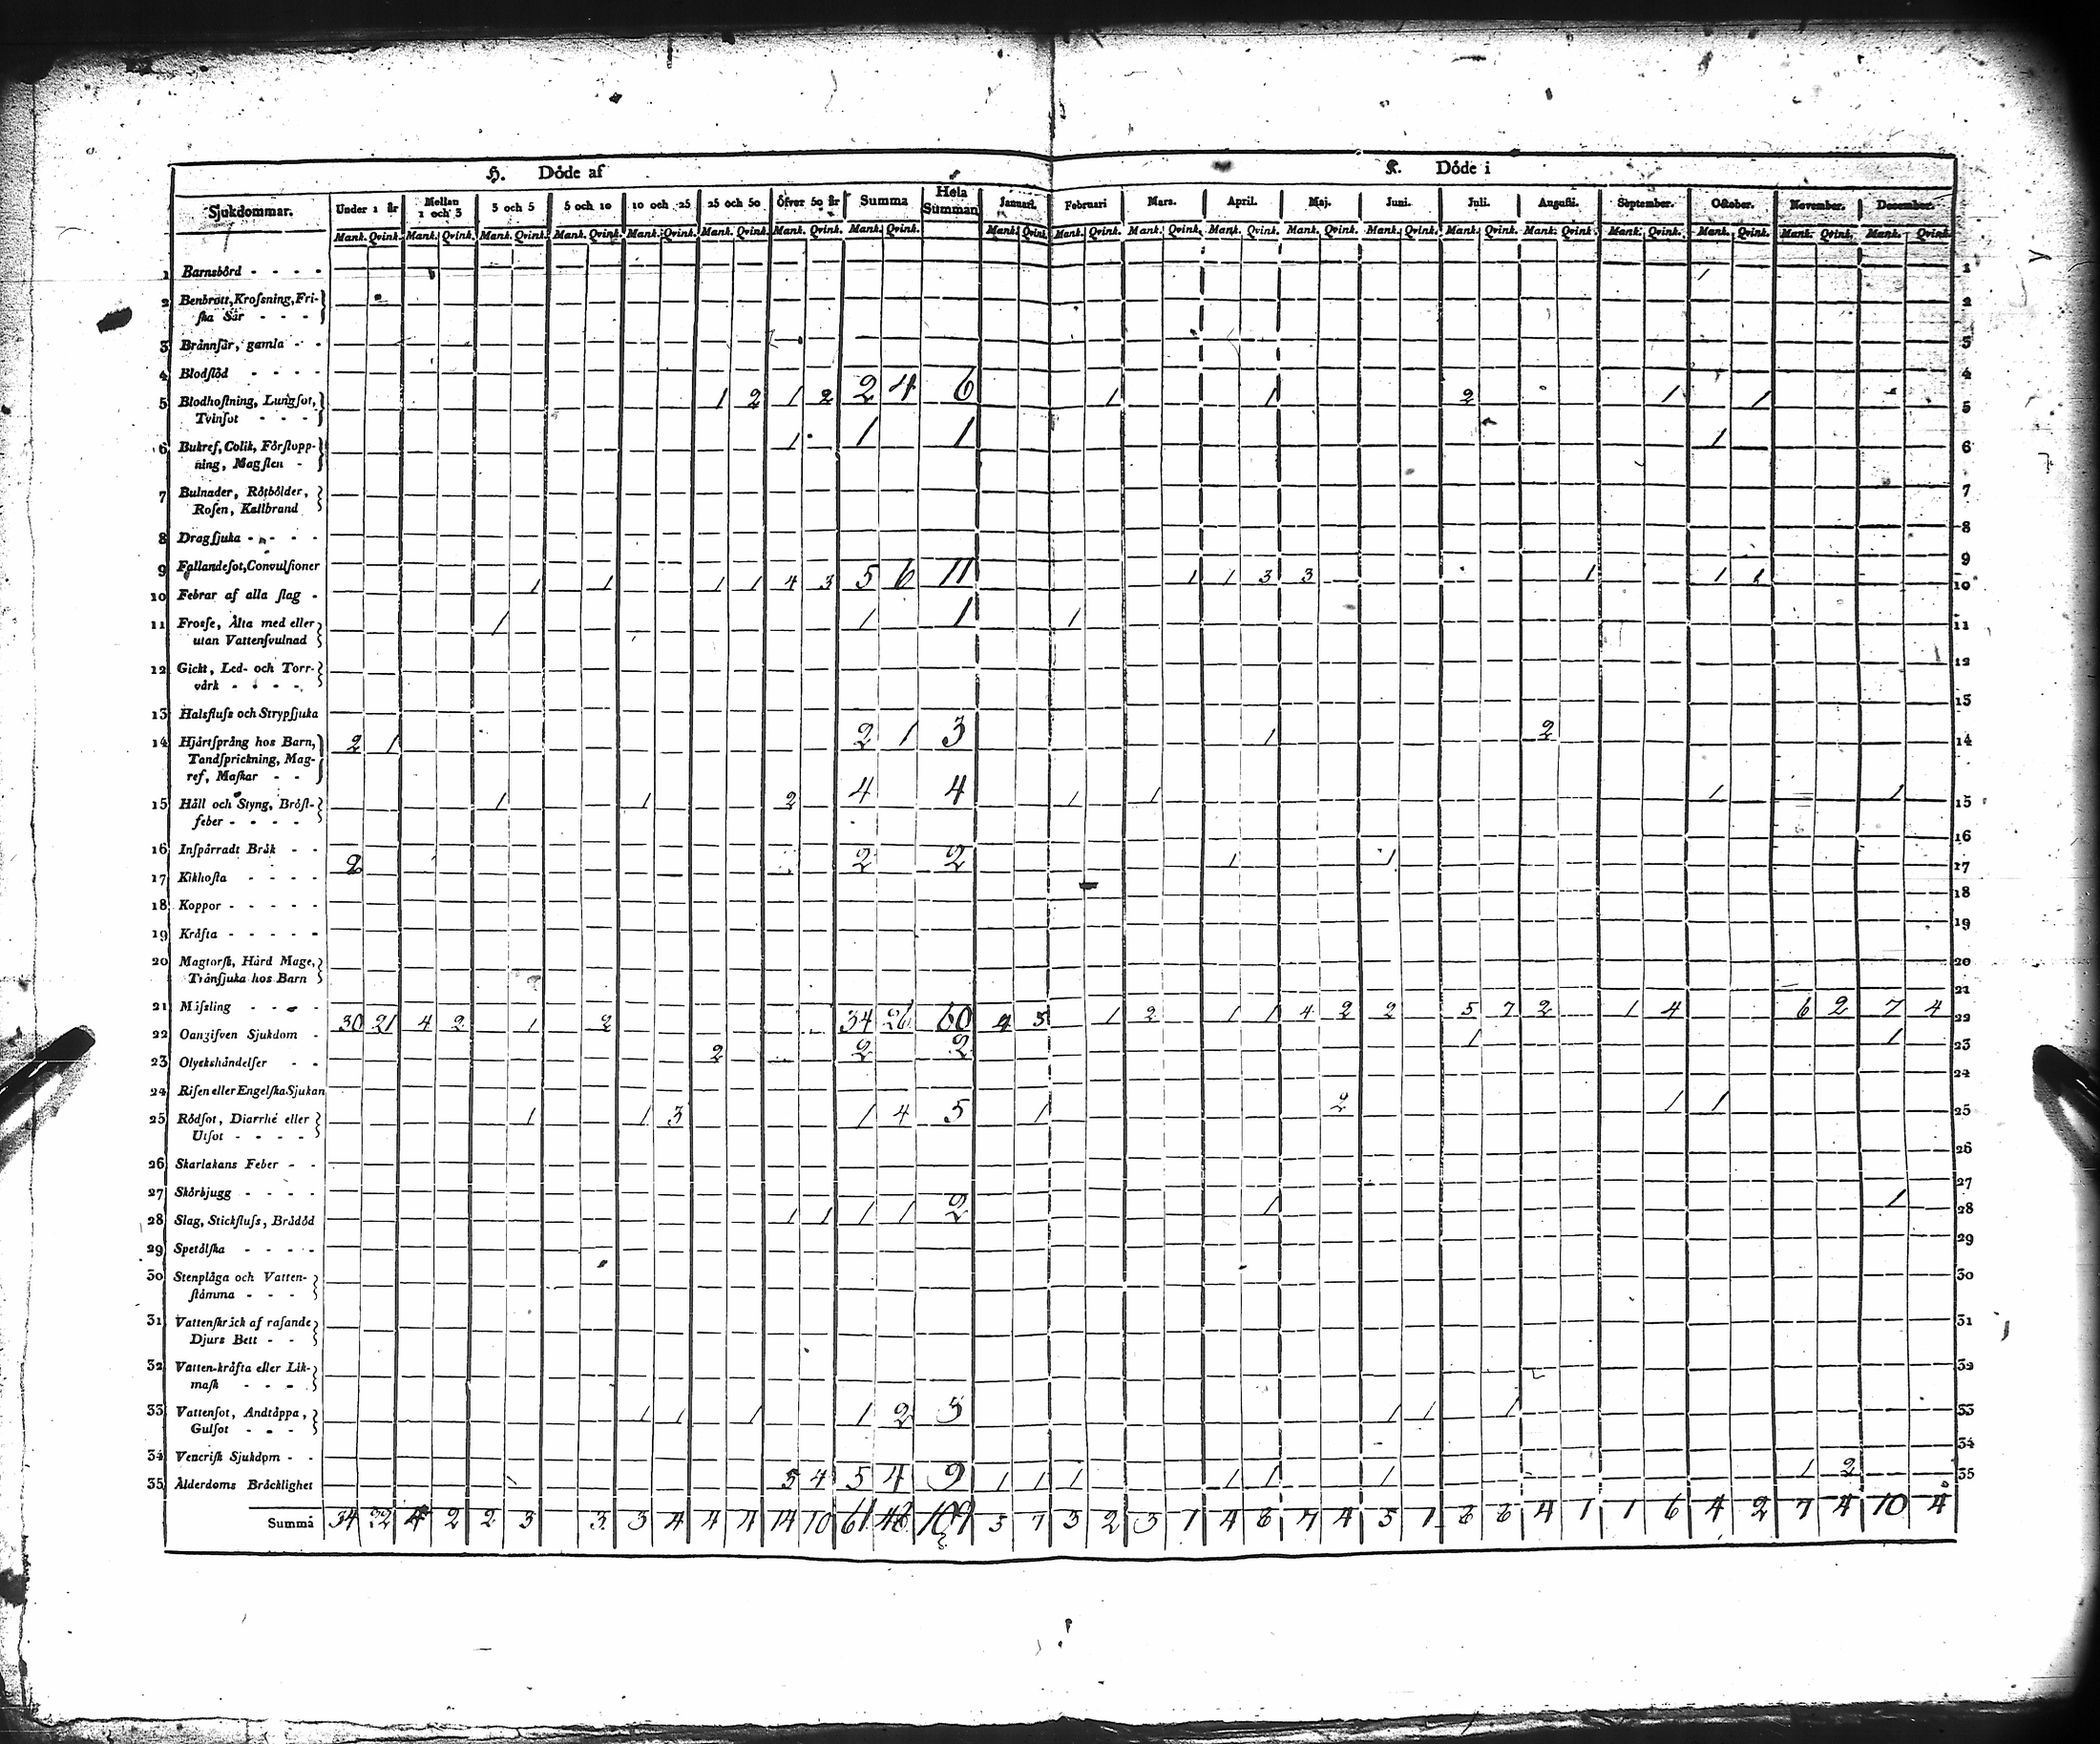 H. Döde af
K. Döde i
Sjukdommar. Under 1 år Mellan 1 och 3 3 och 5 5 och 10 10 och 25 25 och 50 Öfver 50 år Summa Hela Summan Januari. Februari Mars. April. Maj. Juni. Juli. Augusti. September. October. November. December.
Mank. Qvink. Mank. Qvink. Mank. Qvink. Mank. Qvink. Mank. Qvink. Mank. Qvink. Mank. Qvink. Mank. Qvink. Mank. Qvink. Mank. Qvink. Mank. Qvink. Mank. Qvink. Mank. Qvink. Mank. Qvink. Mank. Qvink. Mank. Qvink. Mank. Qvink. Mank. Qvink. Mank. Qvink. Mank. Qvink.
1 Barnsbörd - - - - 1
2 Benbrott, Krosſning, Fri-
ſka Sår - - - 2
3 Brännſår, gamla - - 3
4 Blodſlöd - - - - 4
5 Blodhoſtning, Lungſot, 1 2 1 2 2 4 6 1 1 2 1 1 5
Tvinſot - - -
6 Bukref, Colik, Förſtopp- 1 1 1 1 6
ning, Magſten -
7 Bulnader, Rötbölder, 7
Roſen, Kallbrand
8 Dragſjuka - - - - 8
9 Fallandeſot, Convulſioner 9
10 Febrar af alla ſlag - 1 1 1 1 4 3 5 6 11 1 1 3 3 1 1 1 10
11 Frosſe, Älta med eller 1 1 1 1 11
utan Vattenſvulnad
12 Gickt, Led- och Torr-
värk - - - - 12
13 Halsfluſs och Strypſjuka 13
14 Hjärtſprång hos Barn, 2 1 2 1 3 1 2 14
Tandſprickning, Mag-
ref, Maſkar - -
15 Håll och Styng, Bröſt- 1 1 2 4 4 1 1 1 1 15
feber - - - -
16 Inſpärradt Bråk - - 16
17 Kikhoſta - - - - 2 2 2 1 1 17
18 Koppor - - - - - 18
19 Kräfta - - - - - 19
20 Magtorſk, Hård Mage, 20
Tränſjuka hos Barn
21 Mäſsling - - - - 21
22 Oangifven Sjukdom - 30 21 4 2 1 2 34 26 60 4 5 1 2 1 1 4 2 2 5 7 2 1 4 6 2 7 4 22
23 Olyckshändelſer - - 2 2 2 1 1 23
24 Riſen eller Engelſka Sjukan 24
25 Rödſot, Diarrhé eller 1 1 3 1 4 5 1 2 1 1 25
Utſot - - - -
26 Skarlakans Feber - - 26
27 Skörbjugg - - - - 27
28 Slag, Stickfluſs, Brådöd 1 1 1 1 2 1 1 28
29 Spetälſka - - - - 29
30 Stenplåga och Vatten-
ſtämma - - - 30
31 Vattenſkräck af raſande
Djurs Bett - - 31
32 Vatten-kräfta eller Lik-
maſk - - - 32
33 Vattenſot, Andtäppa, 1 1 1 1 2 3 1 1 1 33
Gulſot - - -
34 Veneriſk Sjukdom - - 34
35 Ålderdoms Bräcklighet 5 4 5 4 9 1 1 1 1 1 1 1 2 35
Summa 34 22 4 2 2 3 3 3 4 4 4 14 10 61 48 109 5 7 3 2 3 1 4 8 7 4 5 1 8 8 4 1 1 6 4 2 7 4 10 4